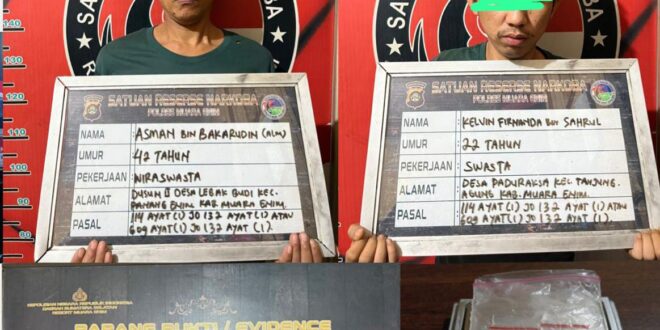 140
130
120
110
100
90
80
SATUAN RESERSE NARKOBA
POLRES MUARA ENIM
NAMA ASMAN BIN BAKARUDIN (ALM)
UMUR 42 TAHUN
PEKERJAAN WIRASWASTA
ALAMAT DUSUN II DESA LEBAK BUDI KEC.
PANANG ENIM KAB. MUARA ENIM.
PASAL 114 AYAT (1) JO 132 AYAT (1) ATAU
609 AYAT (1) JO 132 AYAT (1).
SATUAN RESERSE NARKOBA
POLRES MUARA ENIM
NAMA KELVIN FIRNANDA BIN SAHRUL
UMUR 22 TAHUN
PEKERJAAN SWASTA
ALAMAT DESA PADURAKSA KEC. TANJUNG
AGUNG KAB. MUARA ENIM.
PASAL 114 AYAT (1) JO 132 AYAT (1) ATAU
609 AYAT (1) JO 132 AYAT (1).
KEPOLISIAN NEGARA REPUBLIK INDONESIA
DAERAH SUMATERA SELATAN
RESORT MUARA ENIM
BARANG BUKTI / EVIDENCE